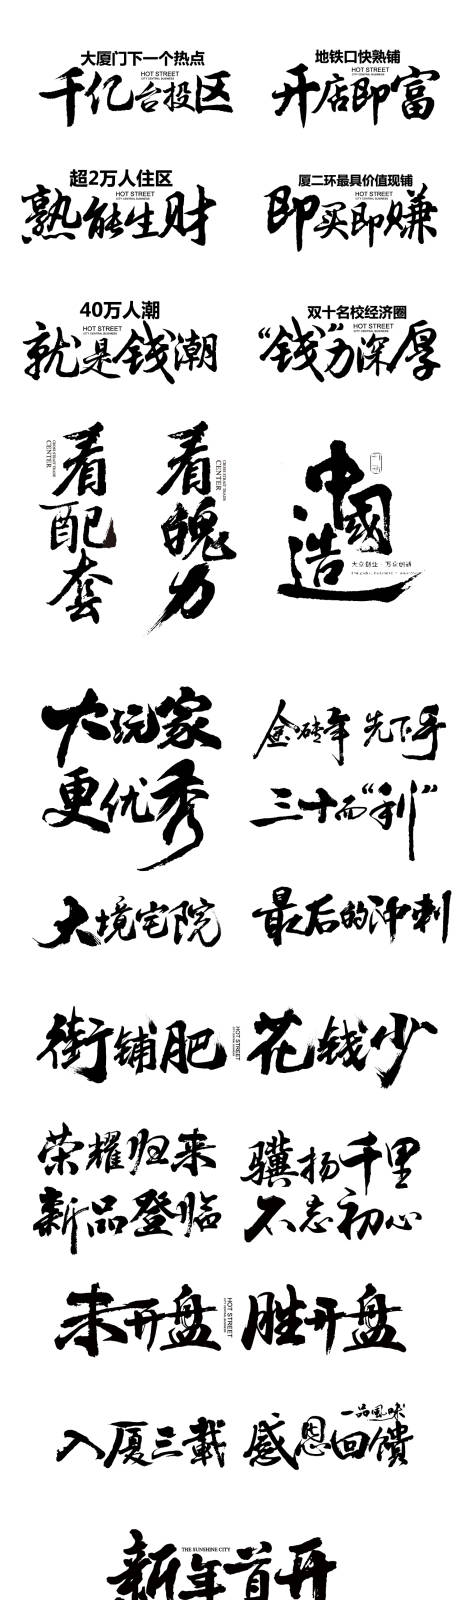 大厦门下一个热点
HOT STREET
CITY CENTRAL BUSINESS
千亿台投区
地铁口快熟铺
HOT STREET
CITY CENTRAL BUSINESS
开店即富
超2万人住区
HOT STREET
CITY CENTRAL BUSINESS
熟能生财
厦二环最具价值现铺
HOT STREET
CITY CENTRAL BUSINESS
即买即赚
40万人潮
HOT STREET
CITY CENTRAL BUSINESS
就是钱潮
双十名校经济圈
HOT STREET
CITY CENTRAL BUSINESS
“钱”力深厚
看配套
CROSS STRAIT TRADE
CENTER
看魄力
CROSS STRAIT TRADE
CENTER
中國造
大众创业·万众创新
大玩家
更优秀
金砖年 先下手
三十而“利”
大境宅院
最后的冲刺
街铺肥
HOT STREET
CITY CENTRAL BUSINESS
花钱少
荣耀归来
新品登临
骥扬千里
不忘初心
未开盘
HOT STREET
CITY CENTRAL BUSINESS
胜开盘
入厦三載
一品風味
感恩回馈
THE SUNSHINE CITY
新年首开